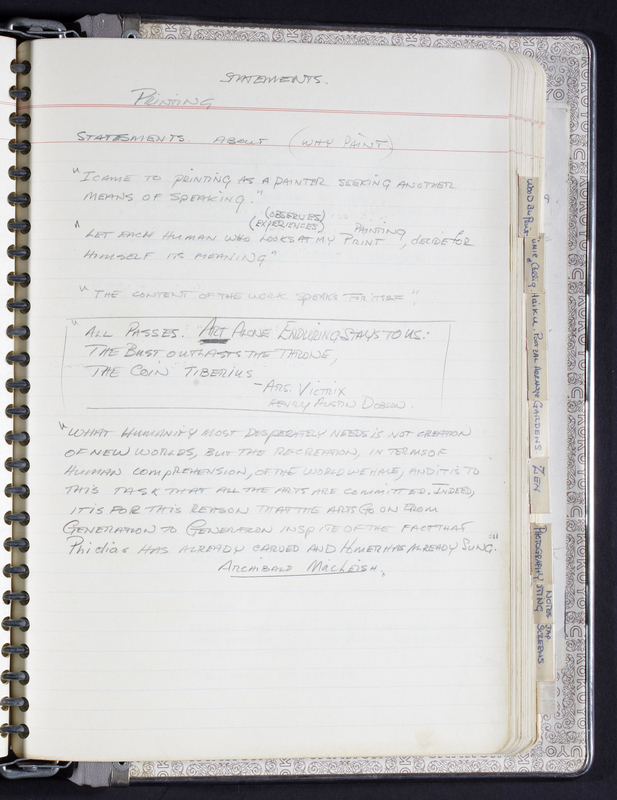 STATEMENTS.
PRINTING
STATESMENTS ABOUT (WHY PAINT)
"I CAME TO PRINTING AS A PAINTER SEEKING ANOTHER
MEANS OF SPEAKING."
(OBSERVES)
(EXPERIENCES) PAINTING
"LET EACH HUMAN WHO LOOKS AT MY PRINT, DECIDE FOR
HIMSELF ITS MEANING"
"THE CONTENT OF THE WORK SPEAKS FOR ITSELF".
"ALL PASSES. ART ALONE ENDURING STAYS TO US:
THE BUST OUTLASTS THE THRONE,
THE COIN TIBERIUS
- ARS. VICTRIX
HENRY AUSTIN DOBSON.
"WHAT HUMANITY MOST DESPERATELY NEEDS IS NOT CREATION
OF NEW WORLDS, BUT THE RECREATION, IN TERMS OF
HUMAN COMPREHENSION, OF THE WORLD WE HAVE, AND IT IS TO
THIS TASK THAT ALL THE ARTS ARE COMMITTED. INDEED,
IT IS FOR THIS REASON THAT THE ARTS GO ON FROM
GENERATION TO GENERATION INSPITE OF THE FACT THAT
Phidias HAS ALREADY CARVED AND HOMER HAS ALREADY SUNG."
ARCHIBALD MACLEISH,
HAIKU
GARDENS
ZEN
PHOTOGRAPHY
NOTES JAP.
SCREENS